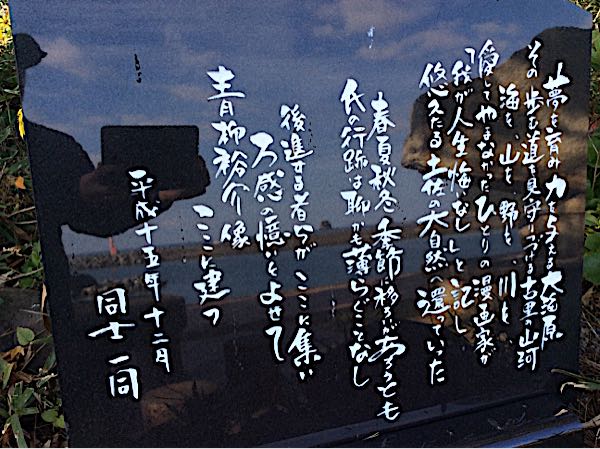 夢を育み力を与える大海原
その歩む道を見守りつづける古里の山河
海を、山を、野を、川を、
愛してやまなかったひとりの漫画家が
「我が人生悔いなし」と記し
悠久たる土佐の大自然へ還っていった
春夏秋冬季節に移ろいがあろうとも
氏の行跡は聊かも薄らぐことなし
後進する者らがここに集い
万感の憶いをよせて
青柳裕介像
ここに建つ
平成十五年十二月
同士一同